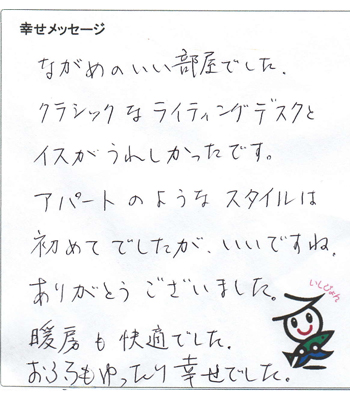 幸せメッセージ
ながめのいい部屋でした.
クラシックな ライティングデスクと
イスが うれしかったです。
アパート のような スタイルは
初めて でしたが、いいですね.
ありがとう ございました。
いしぴょん
暖房も 快適でした.
おふろもゆったり 幸せでした。